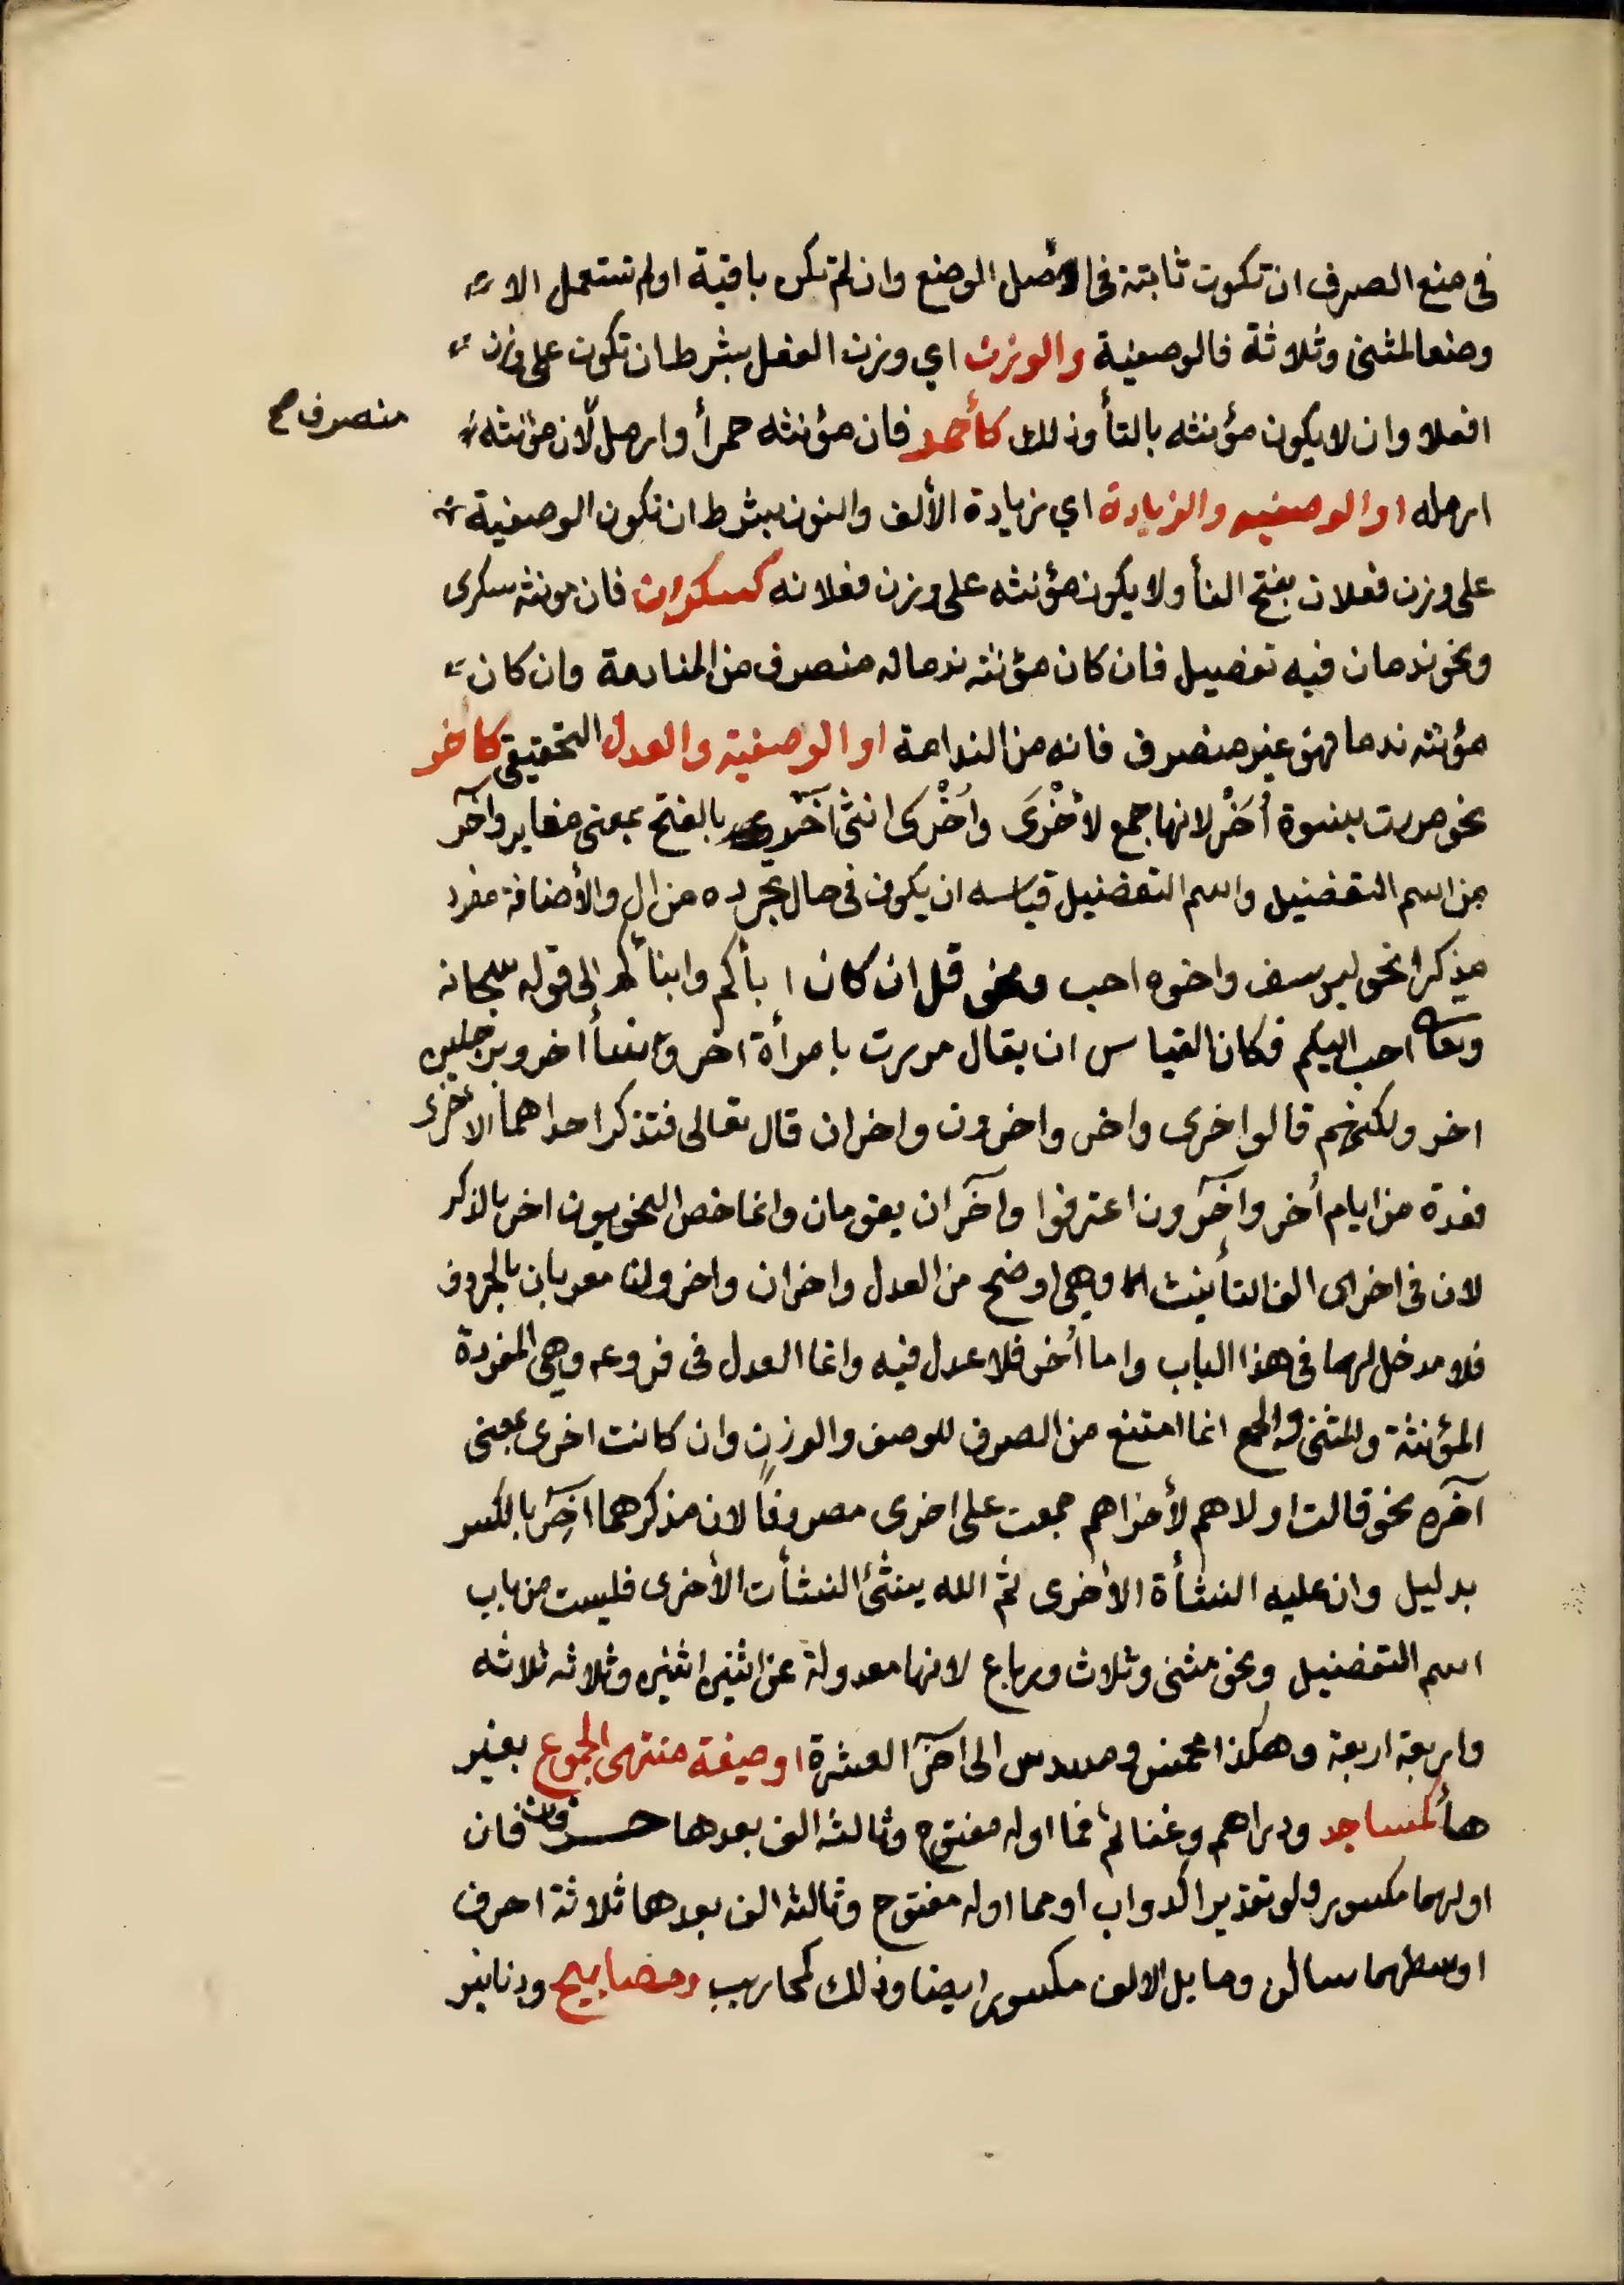 في منع الصرف ان تكون ثابتة في الأصل الموضع وان لم تكن باقية اولم تستعمل الا
وصنعا لمثنى وثلاثة فالوصفية والوزن اي وزن الفعل بشرط ان تكون على وزن
افعلا وان لا يكون مؤنثه بالتأ وذلك كأحمر فان مؤنثه حمرأ وارمل لّان مؤنثه
منصرف صح
ارمله او الوصفيه والزيادة اي زيادة الألف والنون بشرط ان تكون الوصفية
على وزن فعلان بفتح الفأ ولا يكون مؤنثه على وزن فعلانه كسكران فان مونثه سكرى
ونحو ندمان فيه تفصيل فان كان مؤنثه ندمانه منصرف من المنادمة وان كان
مؤنثه ندما فهو غير منصرف فانه من الندامة او الوصفية والعدل التحقيقي كأخر
نحو مررت بنسوة أُخَرْ لانها جمع لأخْرَى واُخْرَى انثى آخَر بالفتح بمعنى مغاير وآخر
من اسم التفضيل واسم التفضيل قياسه ان يكون في حال تجرده من ال والأضافة مفرد
مذكرا نحو ليوسف واخوه احب ونحو قل ان كان ابأكم وابنأكم الى قوله سبحانه
وتعا احب اليكم فكان القياس ان يقال مررت بامرأة اخر وبنسأ اخر وبرجلين
اخر ولكنهم قالوا اخرى واخر واخرون واخران قال تعالى فتذكر احداهما الأخرى
فعدة من ايام أُخر وآخرون اعترفوا وآخران يقومان وانما خص النحويون اخر بالذكر
لان في اخرى الف التأنيث وهي اوضح من العدل واخران واخرون معربان بالحروف
فلا مدخل لهما في هذا الباب واما أخر فلا عدل فيه وانما العدل في فروعه وهي المفردة
المؤنثة والمثنى والجمع انما امتنع من الصرف للوصف والوزن وان كانت اخرى بمعنى
آخره نحو قالت اولاهم لأخراهم جمعت على اخرى مصروفاً لان مذكرهما آخِر بالكسر
بدليل وان عليه النشأة الأخرى ثم الله ينشئ النشأت الأخرى فليست من باب
اسم التفضيل ونحو مثنى وثلاث ورباع لانها معدولة عن اثنين اثنين وثلاثه ثلاثه
واربعة اربعة وهكذا مخمس ومسدس الى آخر العشرة او صيغة منتهى الجموع بغير
هأ كمساجد ودراهم وغنائم فما اوله مفتوح وثالثه الف بعدها حرفان فان
اولهما مكسور ولو تقدير اكدواب او مما اوله مفتوح وثالثه الف بعدها ثلاثة احرف
اوسطهما ساكن وما يل الالف مكسور ايضا وذلك كمحاريب ومصابيح ودنانير